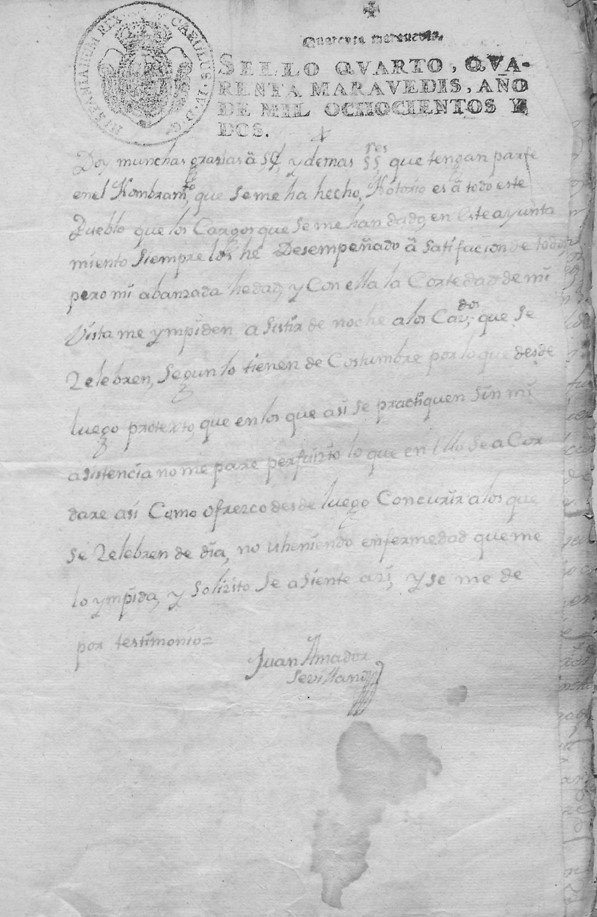 HISPANIARUM REX CAROLUS IV D G
Quarenta maravedis.
SELLO QVARTO, QVA-
RENTA MARAVEDIS, AÑO
DE MIL OCHOCIENTOS Y
DOS.
Doy munchas grasias â y demas SSres que tengan parte
en el Nombramto, que se me ha hecho, Notorio es â todo este
Pueblo que los Cargos que se me han dado, en este ayunta
miento siempre los hé Desempeñado â satifacion de todos
pero mi abanzada hedad, y Con ella la Cortedad de mi
vista me ympiden asistir de noche a los Cavdos; que se
Zelebren, segun lo tienen de Costumbre por lo que desde
luego protexto, que en los que asi se practiquen sin mi
asistencia no me pare perjuizio lo que en ello se aCor
dare asi Como ofrezco desde luego Concurir a los que
se Zelebren de dia, no theniendo enfermedad que me
lo ympida, y solizito se asiente asi, y se me de
por testimonio=
Juan Amador
Sevillano